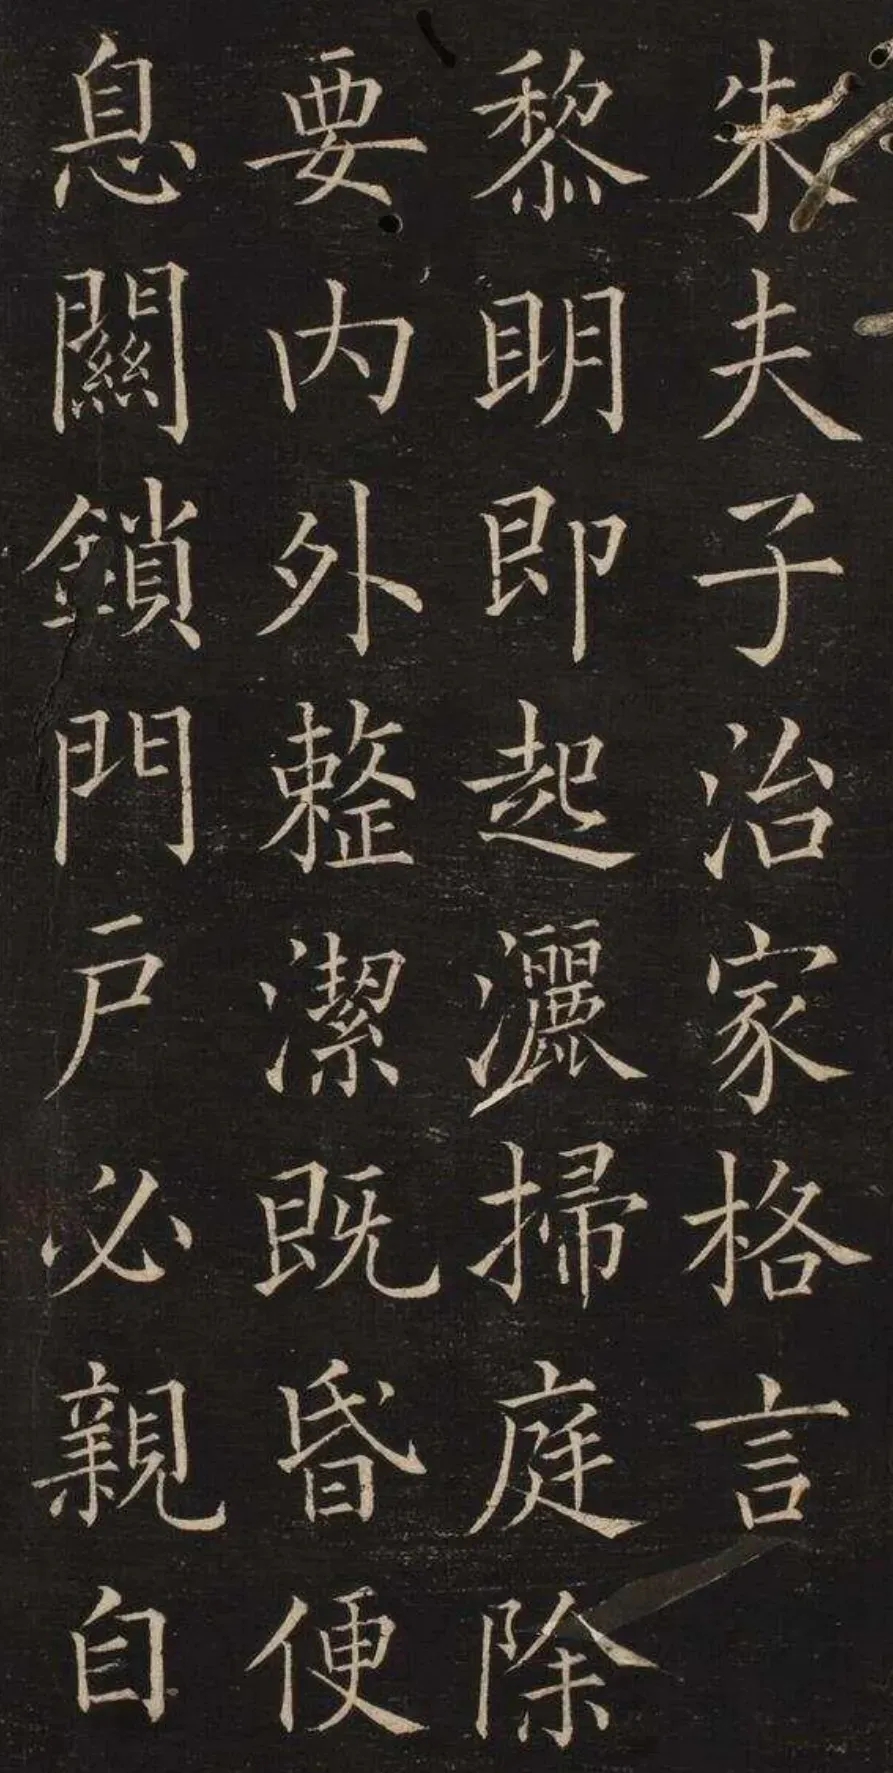 朱夫子治家格言
黎明即起灑掃庭除
要内外整潔既昏便
息關鎖門戶必親自